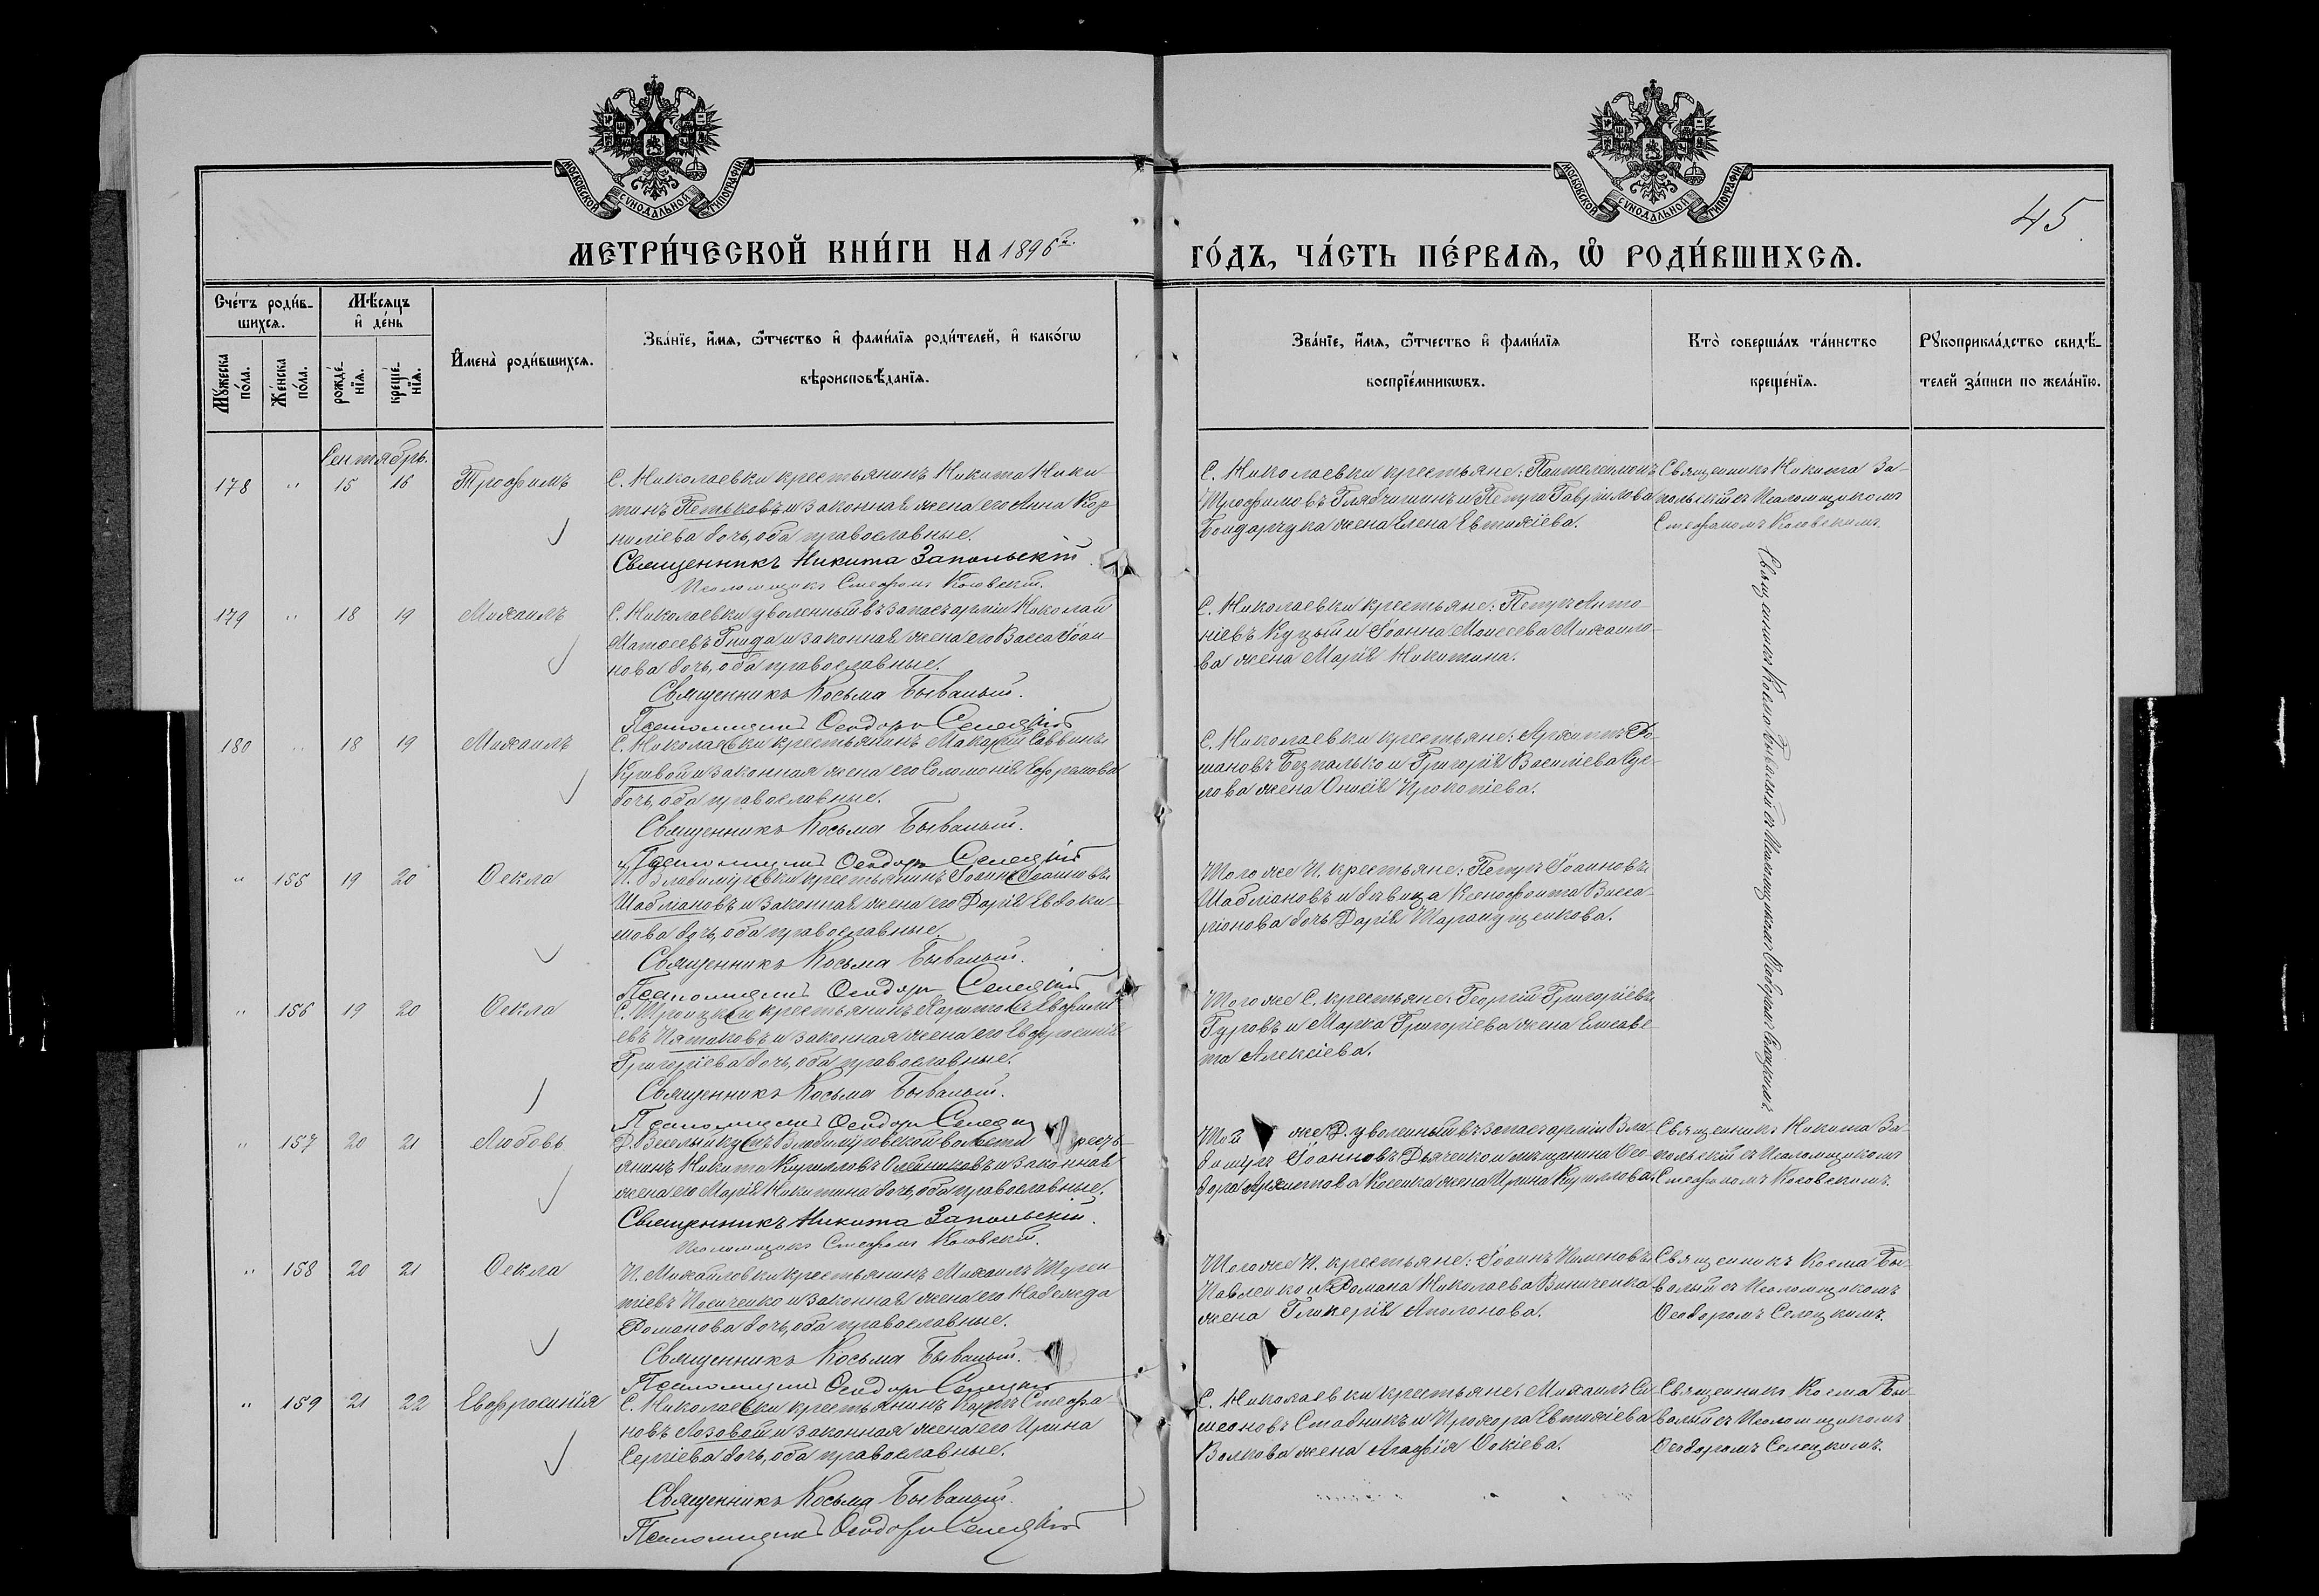 МОСКОВСКОЙ СѴНОДАЛЬНОЙ ТИПОГРАФІИ
МОСКОВСКОЙ СѴНОДАЛЬНОЙ ТИПОГРАФІИ
45
МЕТРИ́ЧЕСКОЙ КНИ́ГИ НА 1896
ГО́ДЪ, ЧА́СТЬ ПЕ́РВАѦ, Ѡ҆ РОДИ́ВШИХСѦ.
Сче́тъ роди́в-
шихсѧ.
Мѣ́сѧцъ
и҆ де́нь
Мꙋ́жеска по́ла.
Же́нска по́ла.
рожде́-
нїѧ.
креще́-
нїѧ.
И҆мена̀ роди́вшихсѧ.
Зва́нїе, и҆́мѧ, ѻ҆́тчество и҆ фами́лїѧ роди́телей, и҆ како́гѡ
вѣроисповѣ́данїѧ.
Зва́нїе, и҆́мѧ, ѻ҆́тчество и҆ фами́лїѧ
воспрїе́мникѡвъ.
Кто̀ соверша́лъ та́инство
креще́нїѧ.
Рꙋкоприкла́дство свидѣ́-
телей за́писи по жела́нїю.
Сентябрь.
178 " 15 16 Трофимъ
С. Николаевки крестьянинъ Никита Ники-
тинъ Петьковъ и законная жена его Анна Кор-
ниліева дочь, оба православные.
Священникъ Никита Запольскій
Псаломщикъ Стефанъ Косовскій.
С. Николаевки крестьяне: Пантелеимонъ
Трофимовъ и Петра Гаврілова
Бондарчука жена Елена Евтихіева.
Священникъ Никита За-
польскій съ Псаломщикомъ
Стефаномъ Косовскимъ.
179 " 18 19 Михаилъ
С. Николаевки уволенный въ запасъ арміи Николай
Матѳеевъ Гнида и законная жена его Васса Іоан-
нова дочь, оба православные.
Священникъ Косьма Бывалый.
Псаломщикъ Ѳеодоръ Селецкій
С. Николаевки крестьяне: Петръ Анто-
ніевъ Куцый и Іоанна Моисеева Михаило-
ва жена Марія Никитина.
Священникъ Косма Бывалый съ Псаломщикомъ Ѳеодоромъ Селецкимъ.
180 " 18 19 Михаилъ
С. Николаевки крестьянинъ Макарій Саввинъ
Кривой и законная жена его Соломонія Ефремова
дочь, оба православные.
Священникъ Косьма Бывалый.
Псаломщикъ Ѳеодоръ Селецкій
С. Николаевки крестьяне: Архиппъ Ро-
мановъ Безпалько и Григорія Василіева
жена Онисія Прокопіева.
" 155 19 20 Ѳекла
П. Владиміровки крестьянинъ Іоаннъ Іоанновъ
Шабліановъ и законная жена его Дарія Евдоки-
мова дочь, оба православные.
Священникъ Косьма Бывалый.
Псаломщикъ Ѳеодоръ Селецкій
Того же П. крестьяне: Петръ Іоанновъ
Шабліановъ и дѣвица Ксенофонта Висса-
ріонова дочь Дарія
" 156 19 20 Ѳекла
С. Троицкаго крестьянинъ Харитонъ Евфимі-
евъ Пятаковъ и законная жена его Евфросинія
Григоріева дочь, оба православные.
Священникъ Косьма Бывалый.
Псаломщикъ Ѳеодоръ
Того же С. крестьяне: Георгій Григоріевъ
Гуровъ и Марка Григоріева жена Елисаве-
та Алексіева.
" 157 20 21 Любовь
Д. Веселый Кутъ Владиміровской волости крест-
янинъ Никита Кирилловъ Олейниковъ и законная
жена его Марія Никитина дочь, оба православные.
Священникъ Никита Запольскій.
Псаломщикъ Стефанъ Косовскій.
Той же Д. уволенный въ запасъ арміи Вла-
диміръ Іоанновъ Дьяченко и мѣщанина Ѳео-
дора Архиппова Косенка жена Ирина Кириллова.
Священникъ Никита За-
польскій съ Псаломщикомъ
Стефаномъ Косовскимъ.
" 158 20 21 Ѳекла
П. Михайловки крестьянинъ Михаилъ Терен-
тіевъ Носиченко и законная жена его Надежда
Романова дочь, оба православные.
Священникъ Косьма Бывалый.
Псаломщикъ Ѳеодоръ Селецкій
Того же П. крестьяне: Іоаннъ Пименовъ
Павленко и Романа Николаева Виниченка
жена Гликерія Аполонова.
Священникъ Косма Бы-
валый съ Псаломщикомъ
Ѳеодоромъ Селецкимъ.
" 159 21 22 Евфросинія
С. Николаевки крестьянинъ Карпъ Стефа-
новъ Лозовой и законная жена его Ирина
Сергіева дочь, оба православные.
Священникъ Косьма Бывалый.
Псаломщикъ Ѳеодоръ Селецкій
С. Николаевки крестьяне: Михаилъ Си-
меоновъ Ставникъ и Прохора Евтихіева
Волкова жена Агафія Фокіева.
Священникъ Косма Бы-
валый съ Псаломщикомъ
Ѳеодоромъ Селецкимъ.